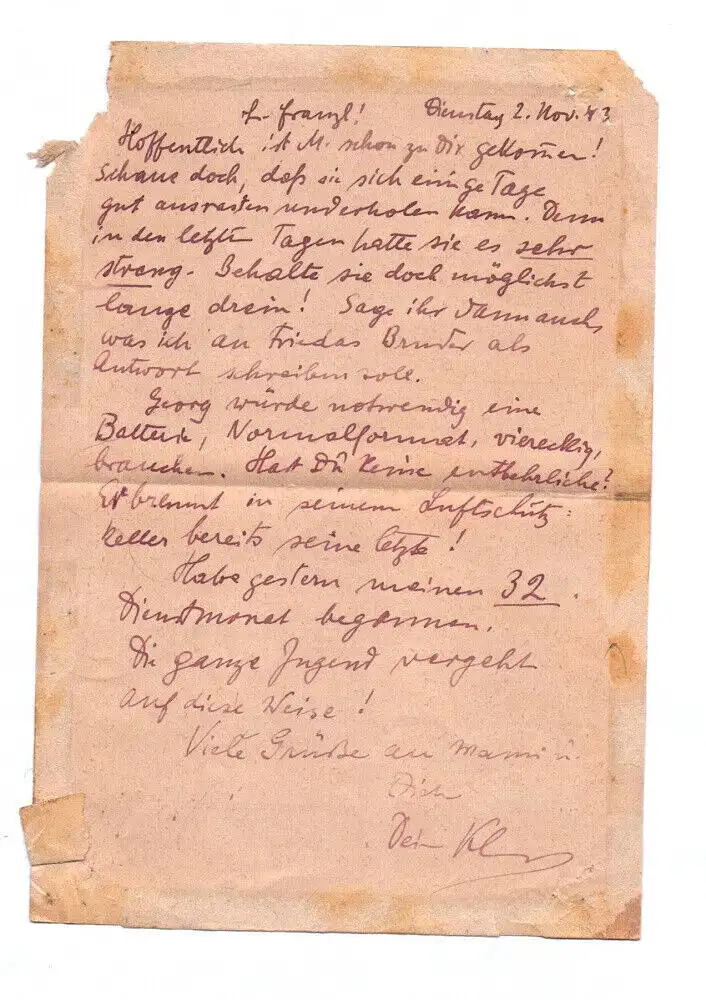 L. Franzl! Dienstag 2. Nov. 43
Hoffentlich ist M. schon zu Dir gekommen!
Schaue doch, daß sie sich einige Tage
gut ausrasten und erholen kann. Denn
in den letzten Tagen hatte sie es sehr
streng. Behalte sie doch möglichst
lange drein! Sage ihr dann auch
was ich an Friedas Bruder als
Antwort schreiben soll.
Georg würde notwendig eine
Batterie, Normalformat, viereckig,
brauchen. Hast Du keine entbehrliche?
Er brennt in seinem Luftschutz=
keller bereits seine letzte!
Habe gestern meinen 32.
Dienstmonat begonnen.
Die ganze Jugend vergeht
auf diese Weise!
Viele Grüße an Mami u.
Dich
Dein